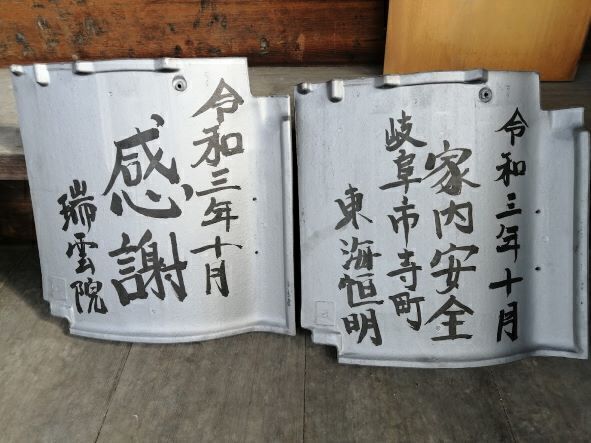 令和三年十月
感謝
瑞雲院
令和三年十月
家内安全
岐阜市寺町
東海恒明